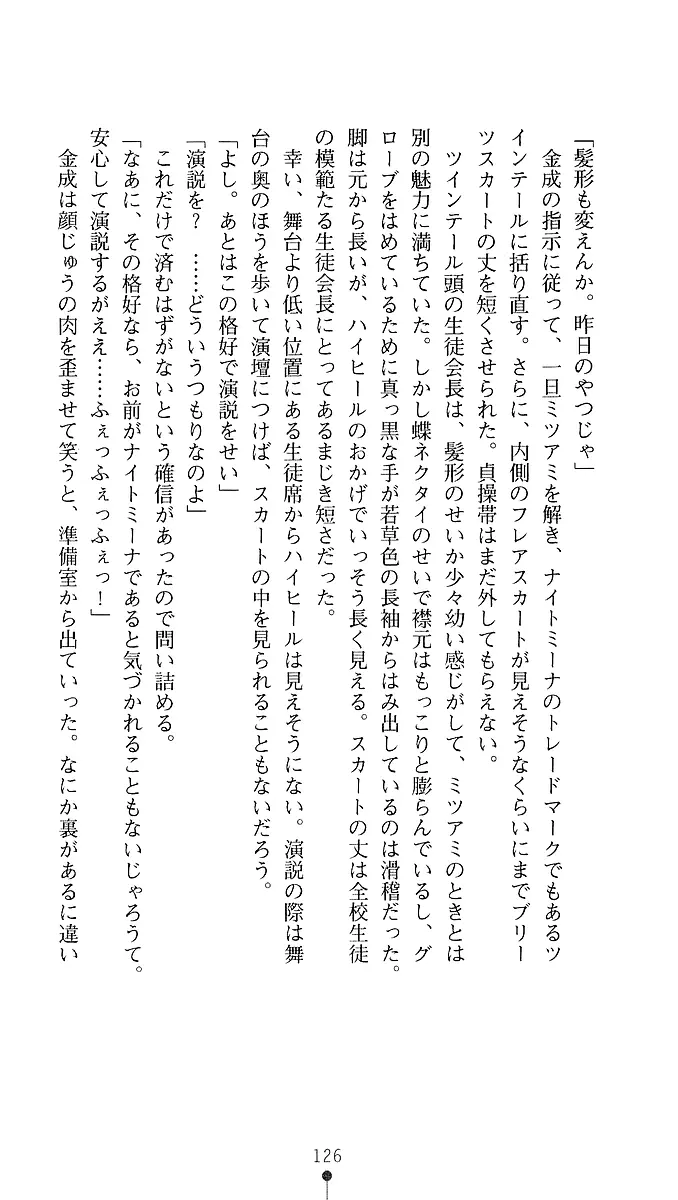 「髪形も変えんか。昨日のやつじゃ」
　金成の指示に従って、一旦ミツアミを解き、ナイトミーナのトレードマークでもあるツ
インテールに括り直す。さらに、内側のフレアスカートが見えそうなくらいにまでプリー
ツスカートの丈を短くさせられた。貞操帯はまだ外してもらえない。
　ツインテール頭の生徒会長は、髪形のせいか少々幼い感じがして、ミツアミのときとは
別の魅力に満ちていた。しかし蝶ネクタイのせいで襟元はもっこりと膨らんでいるし、グ
ローブをはめているために真っ黒な手が若草色の長袖からはみ出しているのは滑稽だった。
脚は元から長いが、ハイヒールのおかげでいっそう長く見える。スカートの丈は全校生徒
の模範たる生徒会長にとってあるまじき短さだった。
　幸い、舞台より低い位置にある生徒席からハイヒールは見えそうにない。演説の際は舞
台の奥のほうを歩いて演壇につけば、スカートの中を見られることもないだろう。
「よし。あとはこの格好で演説をせい」
「演説を？　……どういうつもりなのよ」
　これだけで済むはずがないという確信があったので問い詰める。
「なあに、その格好なら、お前がナイトミーナであると気づかれることもないじゃろうて。
安心して演説するがええ……ふぇっふぇっふぇっ！」
　金成は顔じゅうの肉を歪ませて笑うと、準備室から出ていった。なにか裏があるに違い
126